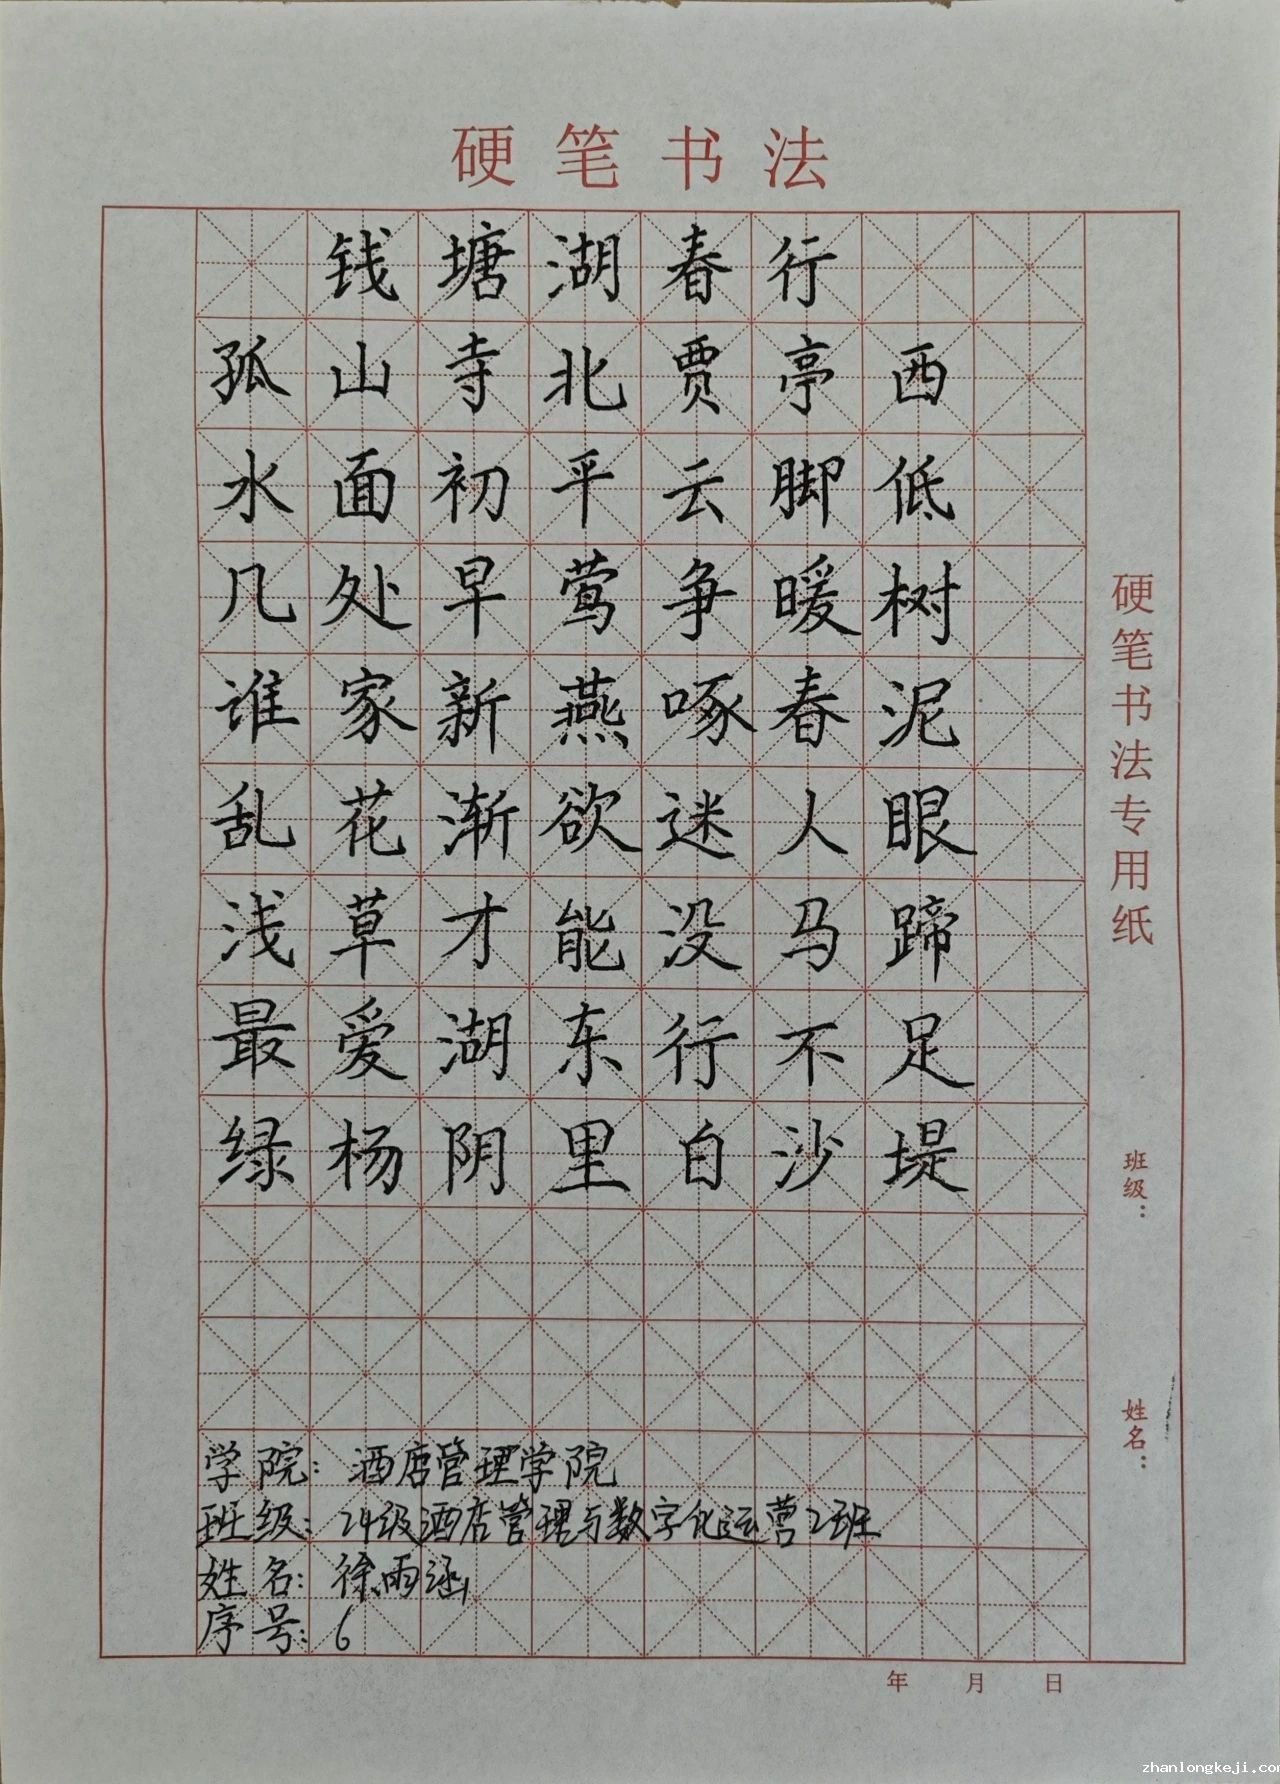 硬笔书法
钱塘湖春行
孤山寺北贾亭西
水面初平云脚低
几处早莺争暖树
谁家新燕啄春泥
乱花渐欲迷人眼
浅草才能没马蹄
最爱湖东行不足
绿杨阴里白沙堤
学院：酒店管理学院
班级：24级酒店管理与数字化运营2班
姓名：徐雨涵
序号：6
硬笔书法专用纸
班级：
姓名：
年 月 日
zhanlongkeji.com